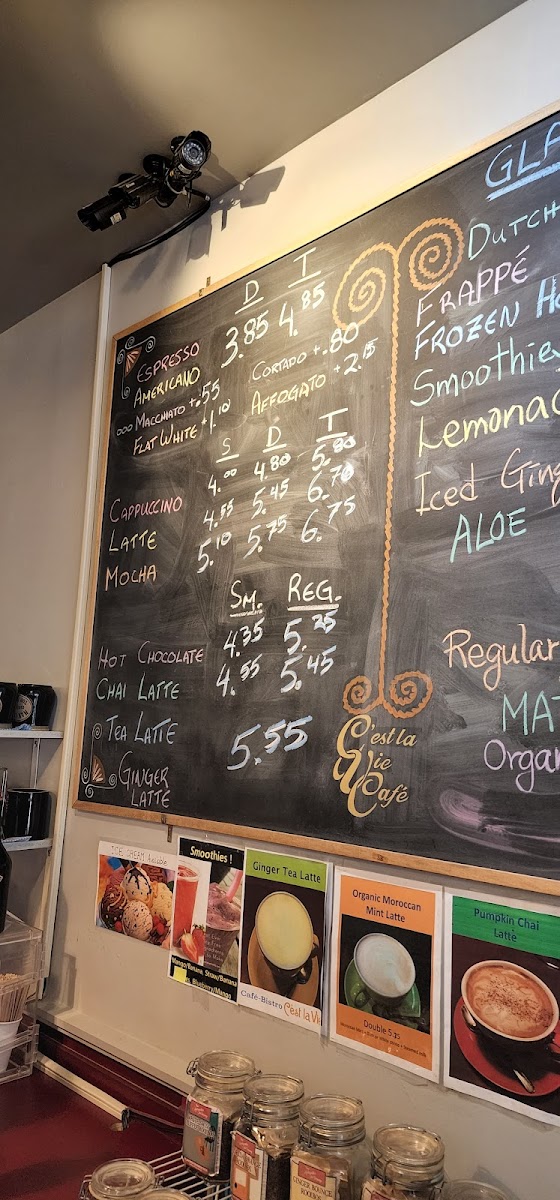 D T
ESPRESSO
AMERICANO 3.85 4.85
MACCHIATO +.55 CORTADO +.80
FLAT WHITE +1.10 AFFOGATO +2.15
S D T
CAPPUCCINO 4.00 4.80 5.80
LATTE 4.55 5.45 6.70
MOCHA 5.10 5.75 6.75
SM. REG.
HOT CHOCOLATE 4.35 5.25
CHAI LATTE 4.55 5.45
TEA LATTE 5.55
GINGER
LATTE
C'est la
Vie
Café
GLA
DUTCH
FRAPPÉ
FROZEN HO
Smoothie
Lemonad
Iced Ging
ALOE
Regular
MAT
Organ
ICE CREAM
Smoothies !
Mango/Banana, Straw/Banana
Blueberry/Mango
Ginger Tea Latte
Café-Bistro C'est la Vie
Organic Moroccan
Mint Latte
Double 5.25
Pumpkin Chai
Latte
GINGER BOUNCE
ROOIBOS